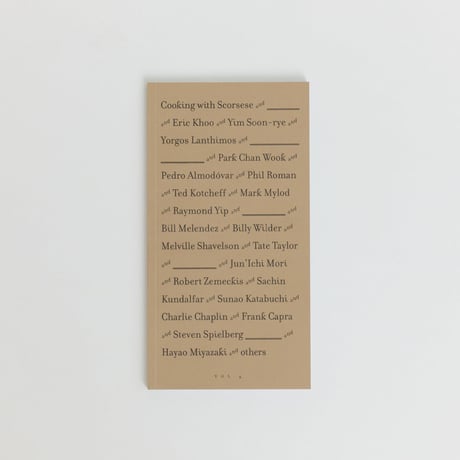 Cooking with Scorsese and ________
and Eric Khoo and Yim Soon-rye and
Yorgos Lanthimos and ____________
__________ and Park Chan Wook and
Pedro Almodóvar and Phil Roman
and Ted Kotcheff and Mark Mylod
and Raymond Yip and __________ and
Bill Melendez and Billy Wilder and
Melville Shavelson and Tate Taylor
and __________ and Jun'Ichi Mori
and Robert Zemeckis and Sachin
Kundalfar and Sunao Katabuchi and
Charlie Chaplin and Frank Capra
and Steven Spielberg ________ and
Hayao Miyazaki and others
VOL.